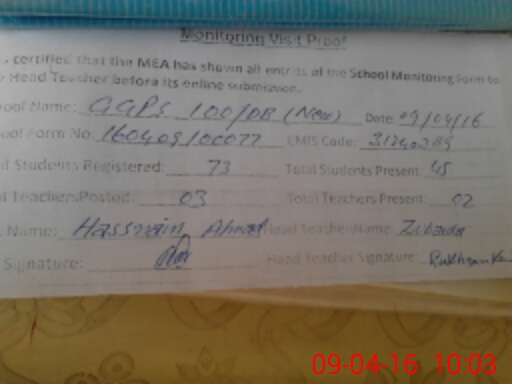 Monitoring Visit Proof
certified that the MEA has shown all entries of the School Monitoring Form to
Head Teacher before its online submission.
ool Name: GGPS 100/DB (New) Date: 09/04/16
ool Form No: EMIS Code:
Students Registered: 73 Total Students Present: 45
Teachers Posted: 03 Total Teachers Present: 02
Name: Hassnain Ahmad Head Teacher Name: Zubaida
Signature: Head Teacher Signature:
09-04-16 10:03